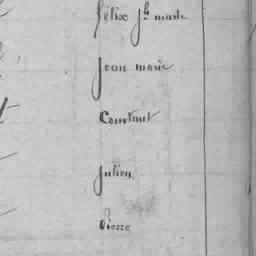 félix Jh marie
jean marie
Constant
julien
Pierre